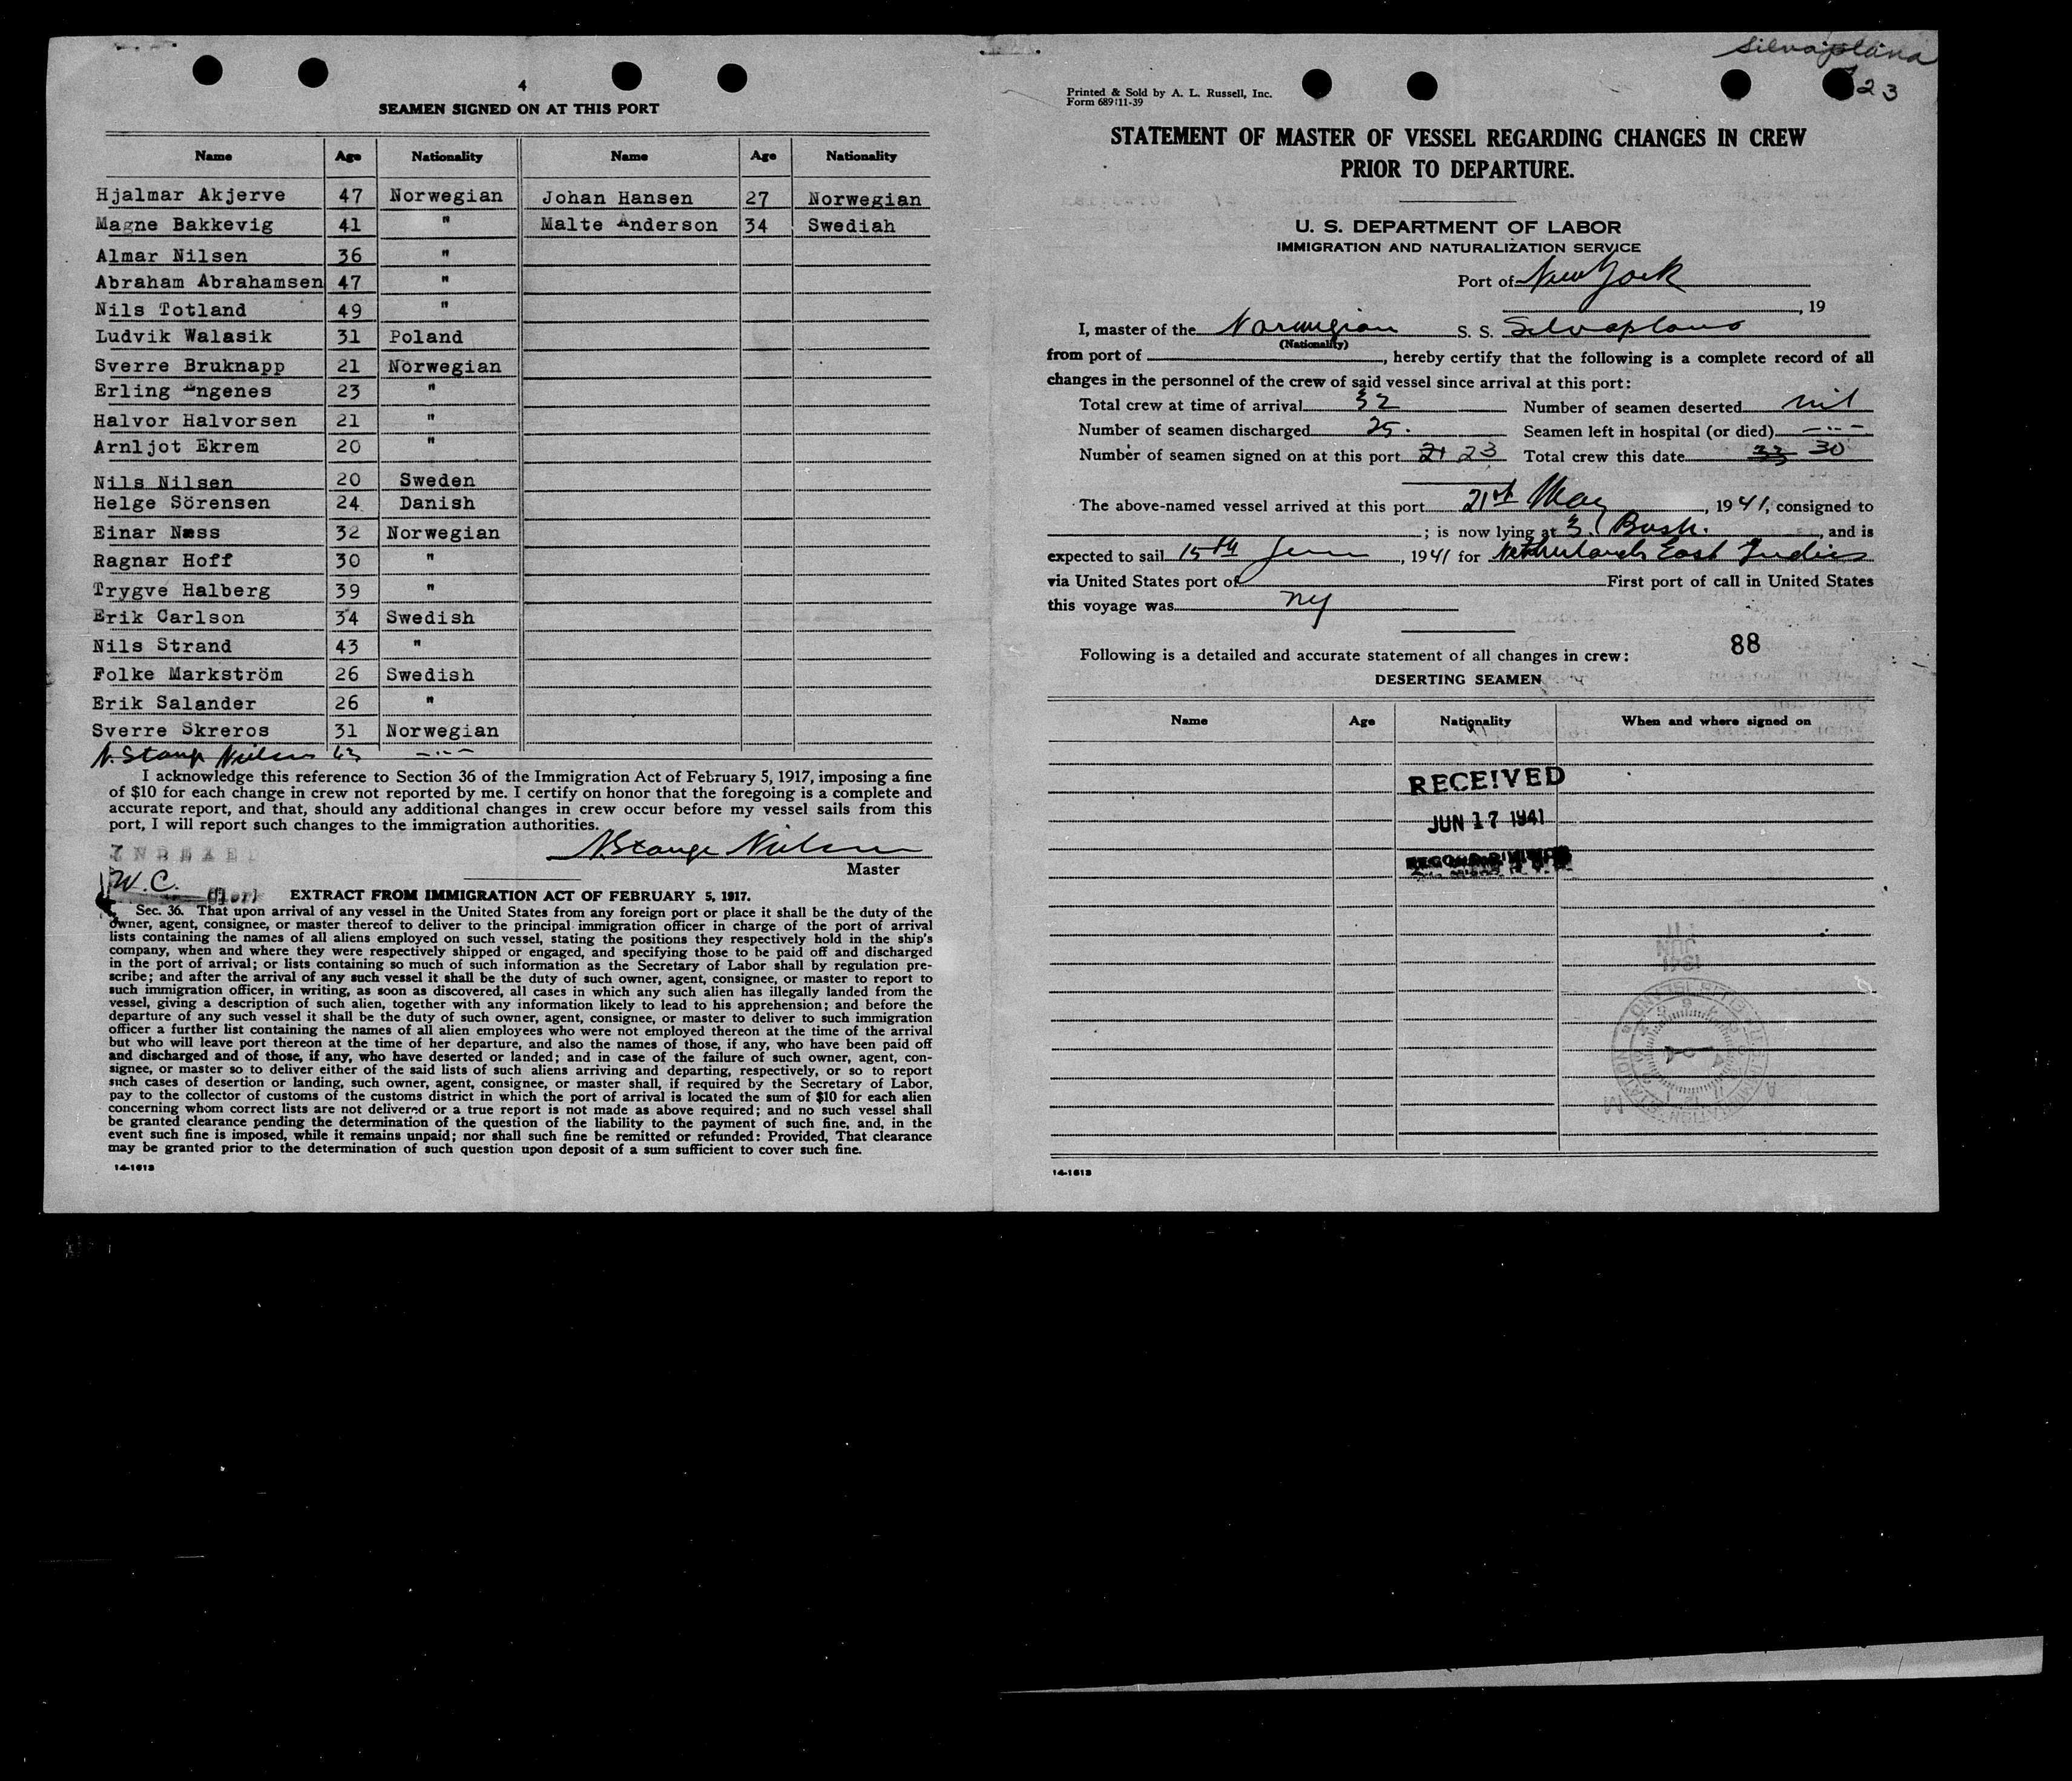 4
SEAMEN SIGNED ON AT THIS PORT
Name Age Nationality Name Age Nationality
Hjalmar Akjerve 47 Norwegian Johan Hansen 27 Norwegian
Magne Bakkevig 41 " Malte Anderson 34 Swediah
Almar Nilsen 36 "
Abraham Abrahamsen 47 "
Nils Totland 49 "
Ludvik Walasik 31 Poland
Sverre Bruknapp 21 Norwegian
Erling Engenes 23 "
Halvor Halvorsen 21 "
Arnljot Ekrem 20 "
Nils Nilsen 20 Sweden
Helge Sörensen 24 Danish
Einar Næss 32 Norwegian
Ragnar Hoff 30 "
Trygve Halberg 39 "
Erik Carlson 34 Swedish
Nils Strand 43 "
Folke Markström 26 Swedish
Erik Salander 26 "
Sverre Skreros 31 Norwegian
N. Stange Nielsen 63 -"-
I acknowledge this reference to Section 36 of the Immigration Act of February 5, 1917, imposing a fine
of $10 for each change in crew not reported by me. I certify on honor that the foregoing is a complete and
accurate report, and that, should any additional changes in crew occur before my vessel sails from this
port, I will report such changes to the immigration authorities.
N. Stange Nielsen
Master
W.C.
EXTRACT FROM IMMIGRATION ACT OF FEBRUARY 5, 1917.
Sec. 36. That upon arrival of any vessel in the United States from any foreign port or place it shall be the duty of the
owner, agent, consignee, or master thereof to deliver to the principal immigration officer in charge of the port of arrival
lists containing the names of all aliens employed on such vessel, stating the positions they respectively hold in the ship's
company, when and where they were respectively shipped or engaged, and specifying those to be paid off and discharged
in the port of arrival; or lists containing so much of such information as the Secretary of Labor shall by regulation pre-
scribe; and after the arrival of any such vessel it shall be the duty of such owner, agent, consignee, or master to report to
such immigration officer, in writing, as soon as discovered, all cases in which any such alien has illegally landed from the
vessel, giving a description of such alien, together with any information likely to lead to his apprehension; and before the
departure of any such vessel it shall be the duty of such owner, agent, consignee, or master to deliver to such immigration
officer a further list containing the names of all alien employees who were not employed thereon at the time of the arrival
but who will leave port thereon at the time of her departure, and also the names of those, if any, who have been paid off
and discharged and of those, if any, who have deserted or landed; and in case of the failure of such owner, agent, con-
signee, or master so to deliver either of the said lists of such aliens arriving and departing, respectively, or so to report
such cases of desertion or landing, such owner, agent, consignee, or master shall, if required by the Secretary of Labor,
pay to the collector of customs of the customs district in which the port of arrival is located the sum of $10 for each alien
concerning whom correct lists are not delivered or a true report is not made as above required; and no such vessel shall
be granted clearance pending the determination of the question of the liability to the payment of such fine, and, in the
event such fine is imposed, while it remains unpaid; nor shall such fine be remitted or refunded: Provided, That clearance
may be granted prior to the determination of such question upon deposit of a sum sufficient to cover such fine.
14-1613
Silvaplana
23
Printed & Sold by A. L. Russell, Inc.
Form 689 11-39
STATEMENT OF MASTER OF VESSEL REGARDING CHANGES IN CREW
PRIOR TO DEPARTURE.
U. S. DEPARTMENT OF LABOR
IMMIGRATION AND NATURALIZATION SERVICE
Port of New York
, 19
I, master of the Norwegian S. S. Silvaplana
(Nationality)
from port of , hereby certify that the following is a complete record of all
changes in the personnel of the crew of said vessel since arrival at this port:
Total crew at time of arrival 32 Number of seamen deserted nil
Number of seamen discharged 25. Seamen left in hospital (or died) -"-
Number of seamen signed on at this port 21 23 Total crew this date 33 30
The above-named vessel arrived at this port 21st May, 1941, consigned to
; is now lying at 3. Bush. , and is
expected to sail 15th June, 1941 for Netherlands East Indies
via United States port of First port of call in United States
this voyage was NY
88
Following is a detailed and accurate statement of all changes in crew:
DESERTING SEAMEN
Name Age Nationality When and where signed on
RECEIVED
JUN 17 1941
14-1613